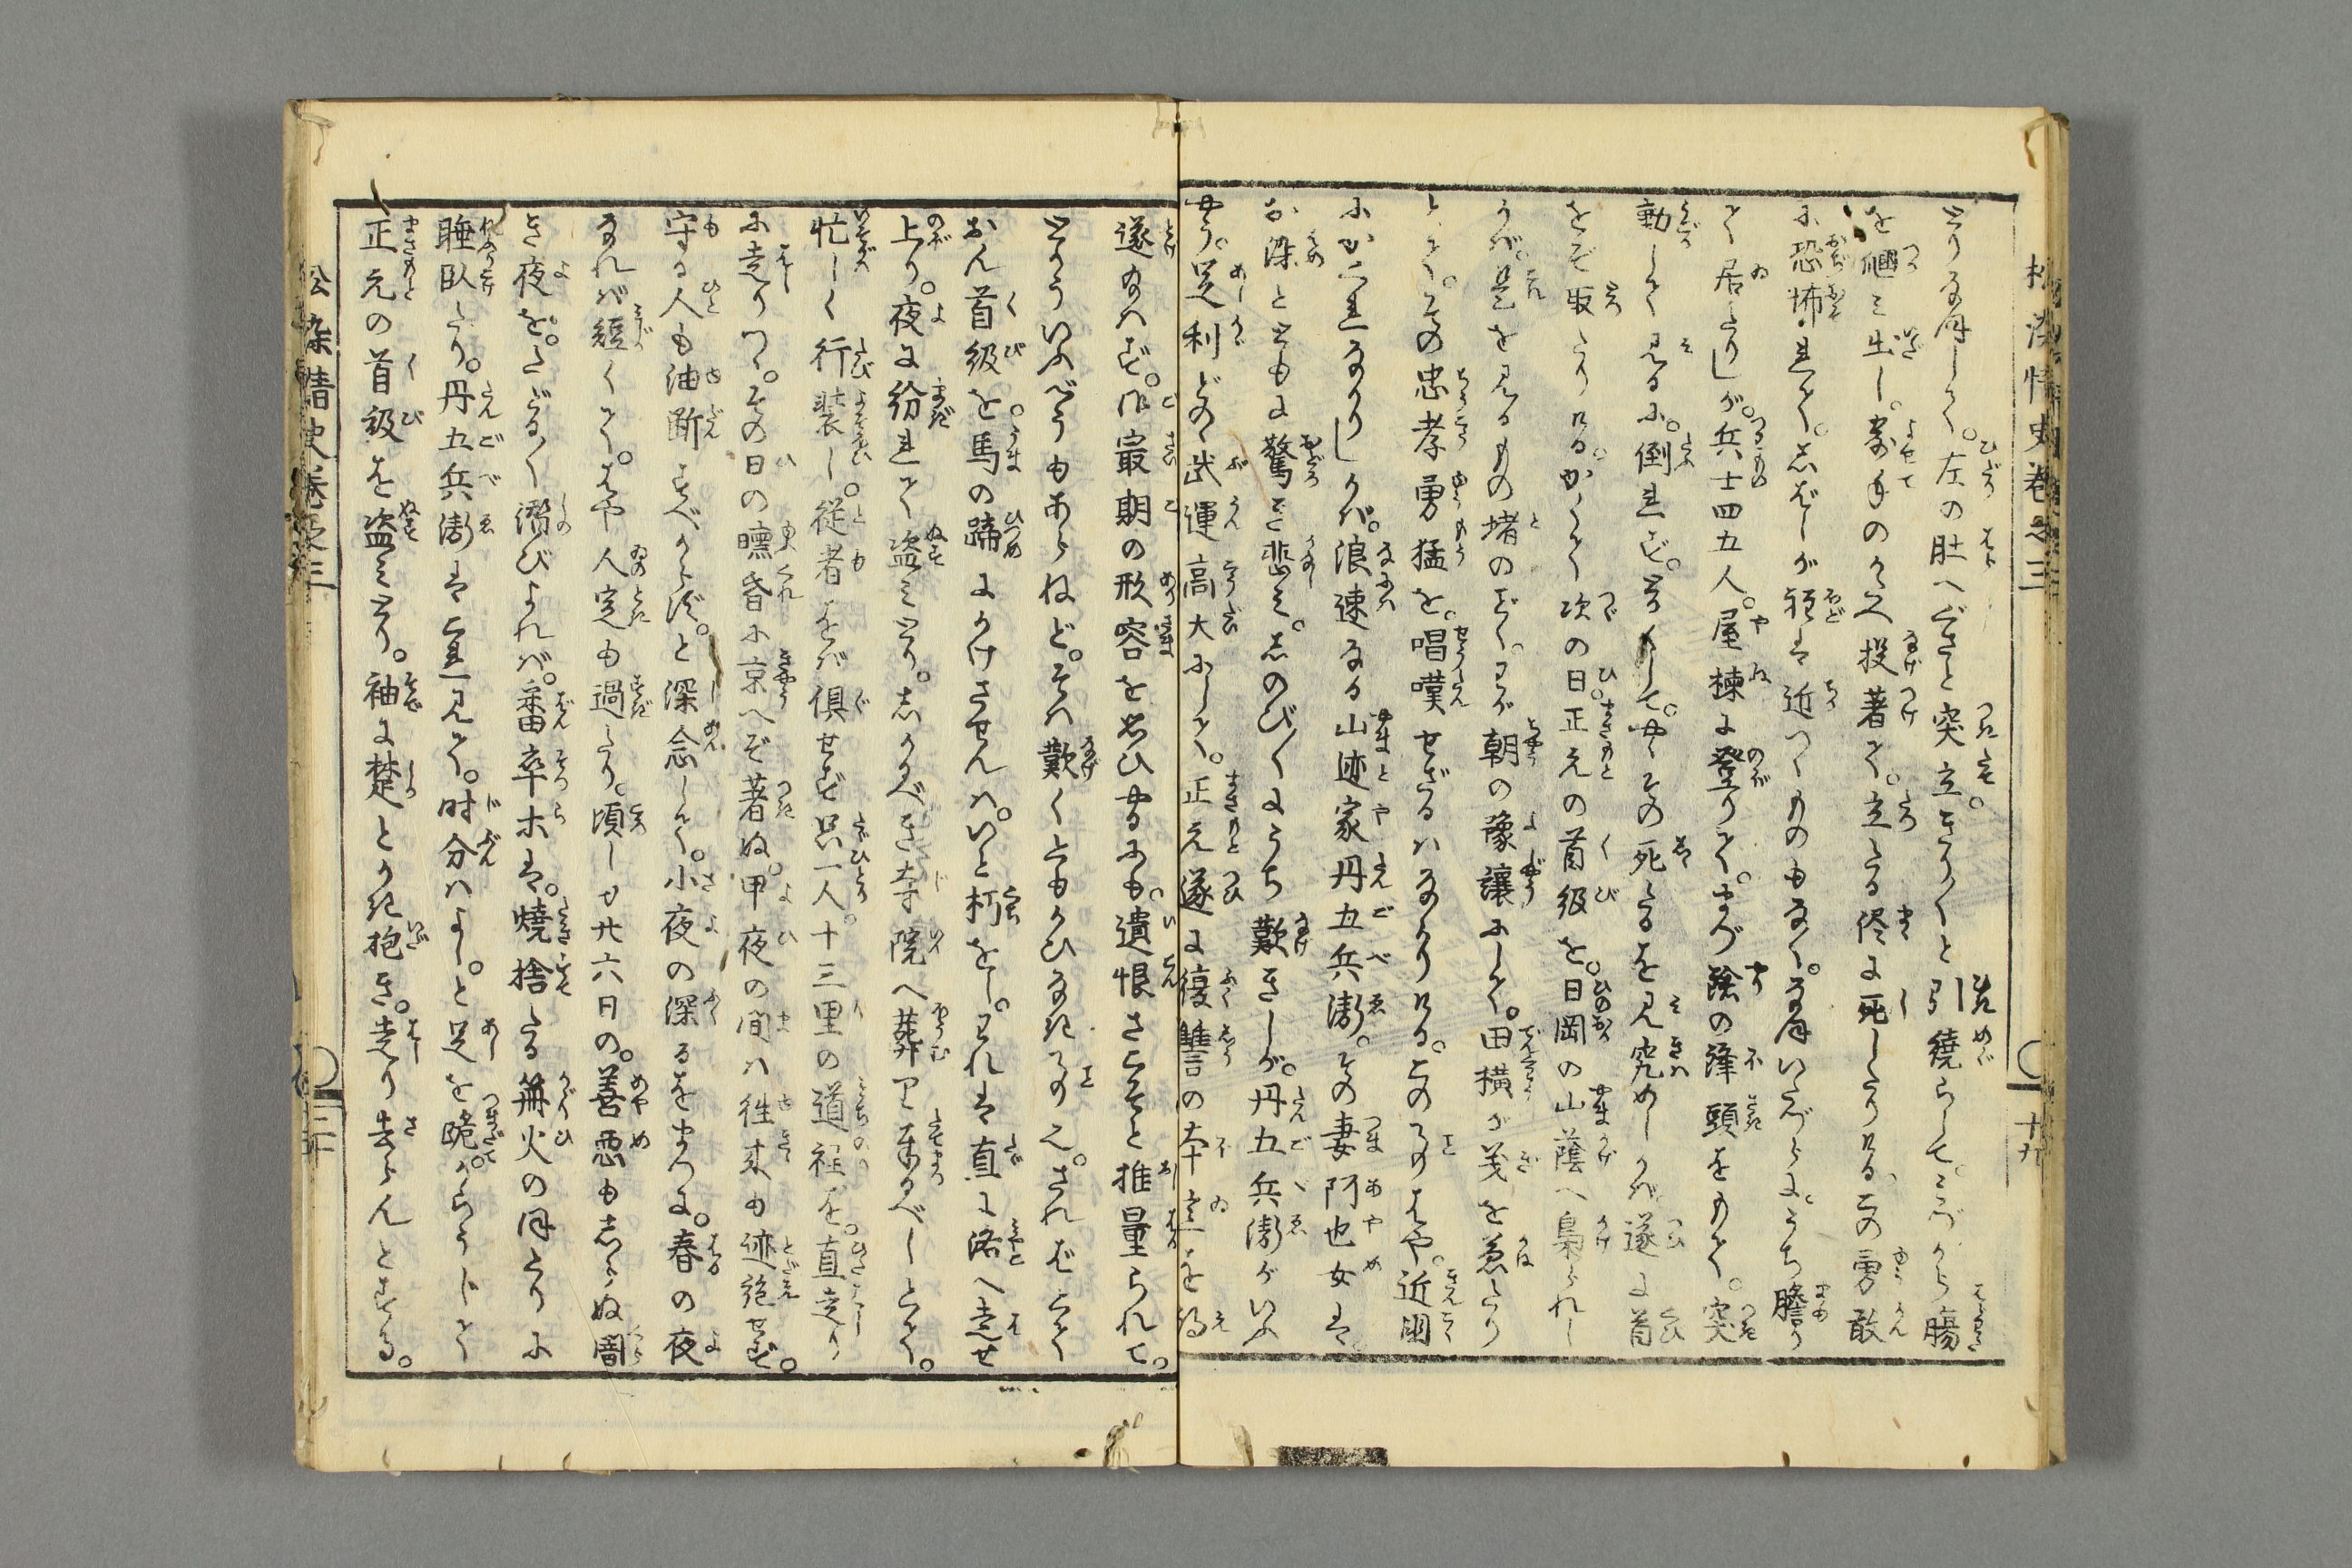 とりなほして。左の肚へぐさと突立。きり〳〵と引繞らして。こぼれる腸
を𢌞み出し。寄手のうへ投著て。立たる侭に死したりける。この勇敢
に恐怖れて。しばしが程は近つくものもなく。なほいたづらに。うち瞻り
て居たりしが。兵士四五人。屋棟に登りて。まづ鎗の鋒頭をもて。突
動して見るに。倒れず。やうやくその死たるを見究めしかば遂に首
をぞ取たりける。かくて次の日。正元の首級を。日岡の山蔭へ梟られし
うば。是を見るもの堵のごとく。わが朝の豫讓にして。田横が義を兼たり
とて。その忠孝勇猛を。唱嘆せざるはなかりける。この事はや。近国
にかくれなかりしかば。浪速なる山迹家丹五兵衛。その妻阿也女は。
お染とともに驚き悲み。しのび〳〵にうち歎きしが。丹五兵衛がいふ
やう。足利どの武運高大にして。正元遂に復讐の本意を得
遂給はず。御最期の形容を思ひやるにも。遺恨さこそと推量られて。
とかういふべうもあらねど。そは歎くともかひなき事也。さればとて
おん首級を馬の蹄にかけさせんは。いと朽をし。われは直に洛へ走せ
上り。夜に紛れて盗みとり。しかるべき寺院へ葬り奉るべしとて。
忙しく行装し。従者をば倶せず只一人。十三里の道程を。直走り
に走りつゝ。その日の曛昏に京へぞ著ぬ。甲夜の間は徃来も迹絶せず。
守る人も油断すべからず。と深念して。小夜の深るをまつに。春の夜
なれば短くて。はや人定も過たり。頃しも廿六日の。善悪もしらぬ闇
き夜を。たどる〳〵潜びよれば。番卒ホは。燒捨たる篝火のほとりに
睡臥たり。丹五兵衛は這見て。时分はよし。と足を跪。からうじて
正元の首級を盗みとり。袖に楚とかき抱き。走り去らんとする。
松染情史巻之三
十九